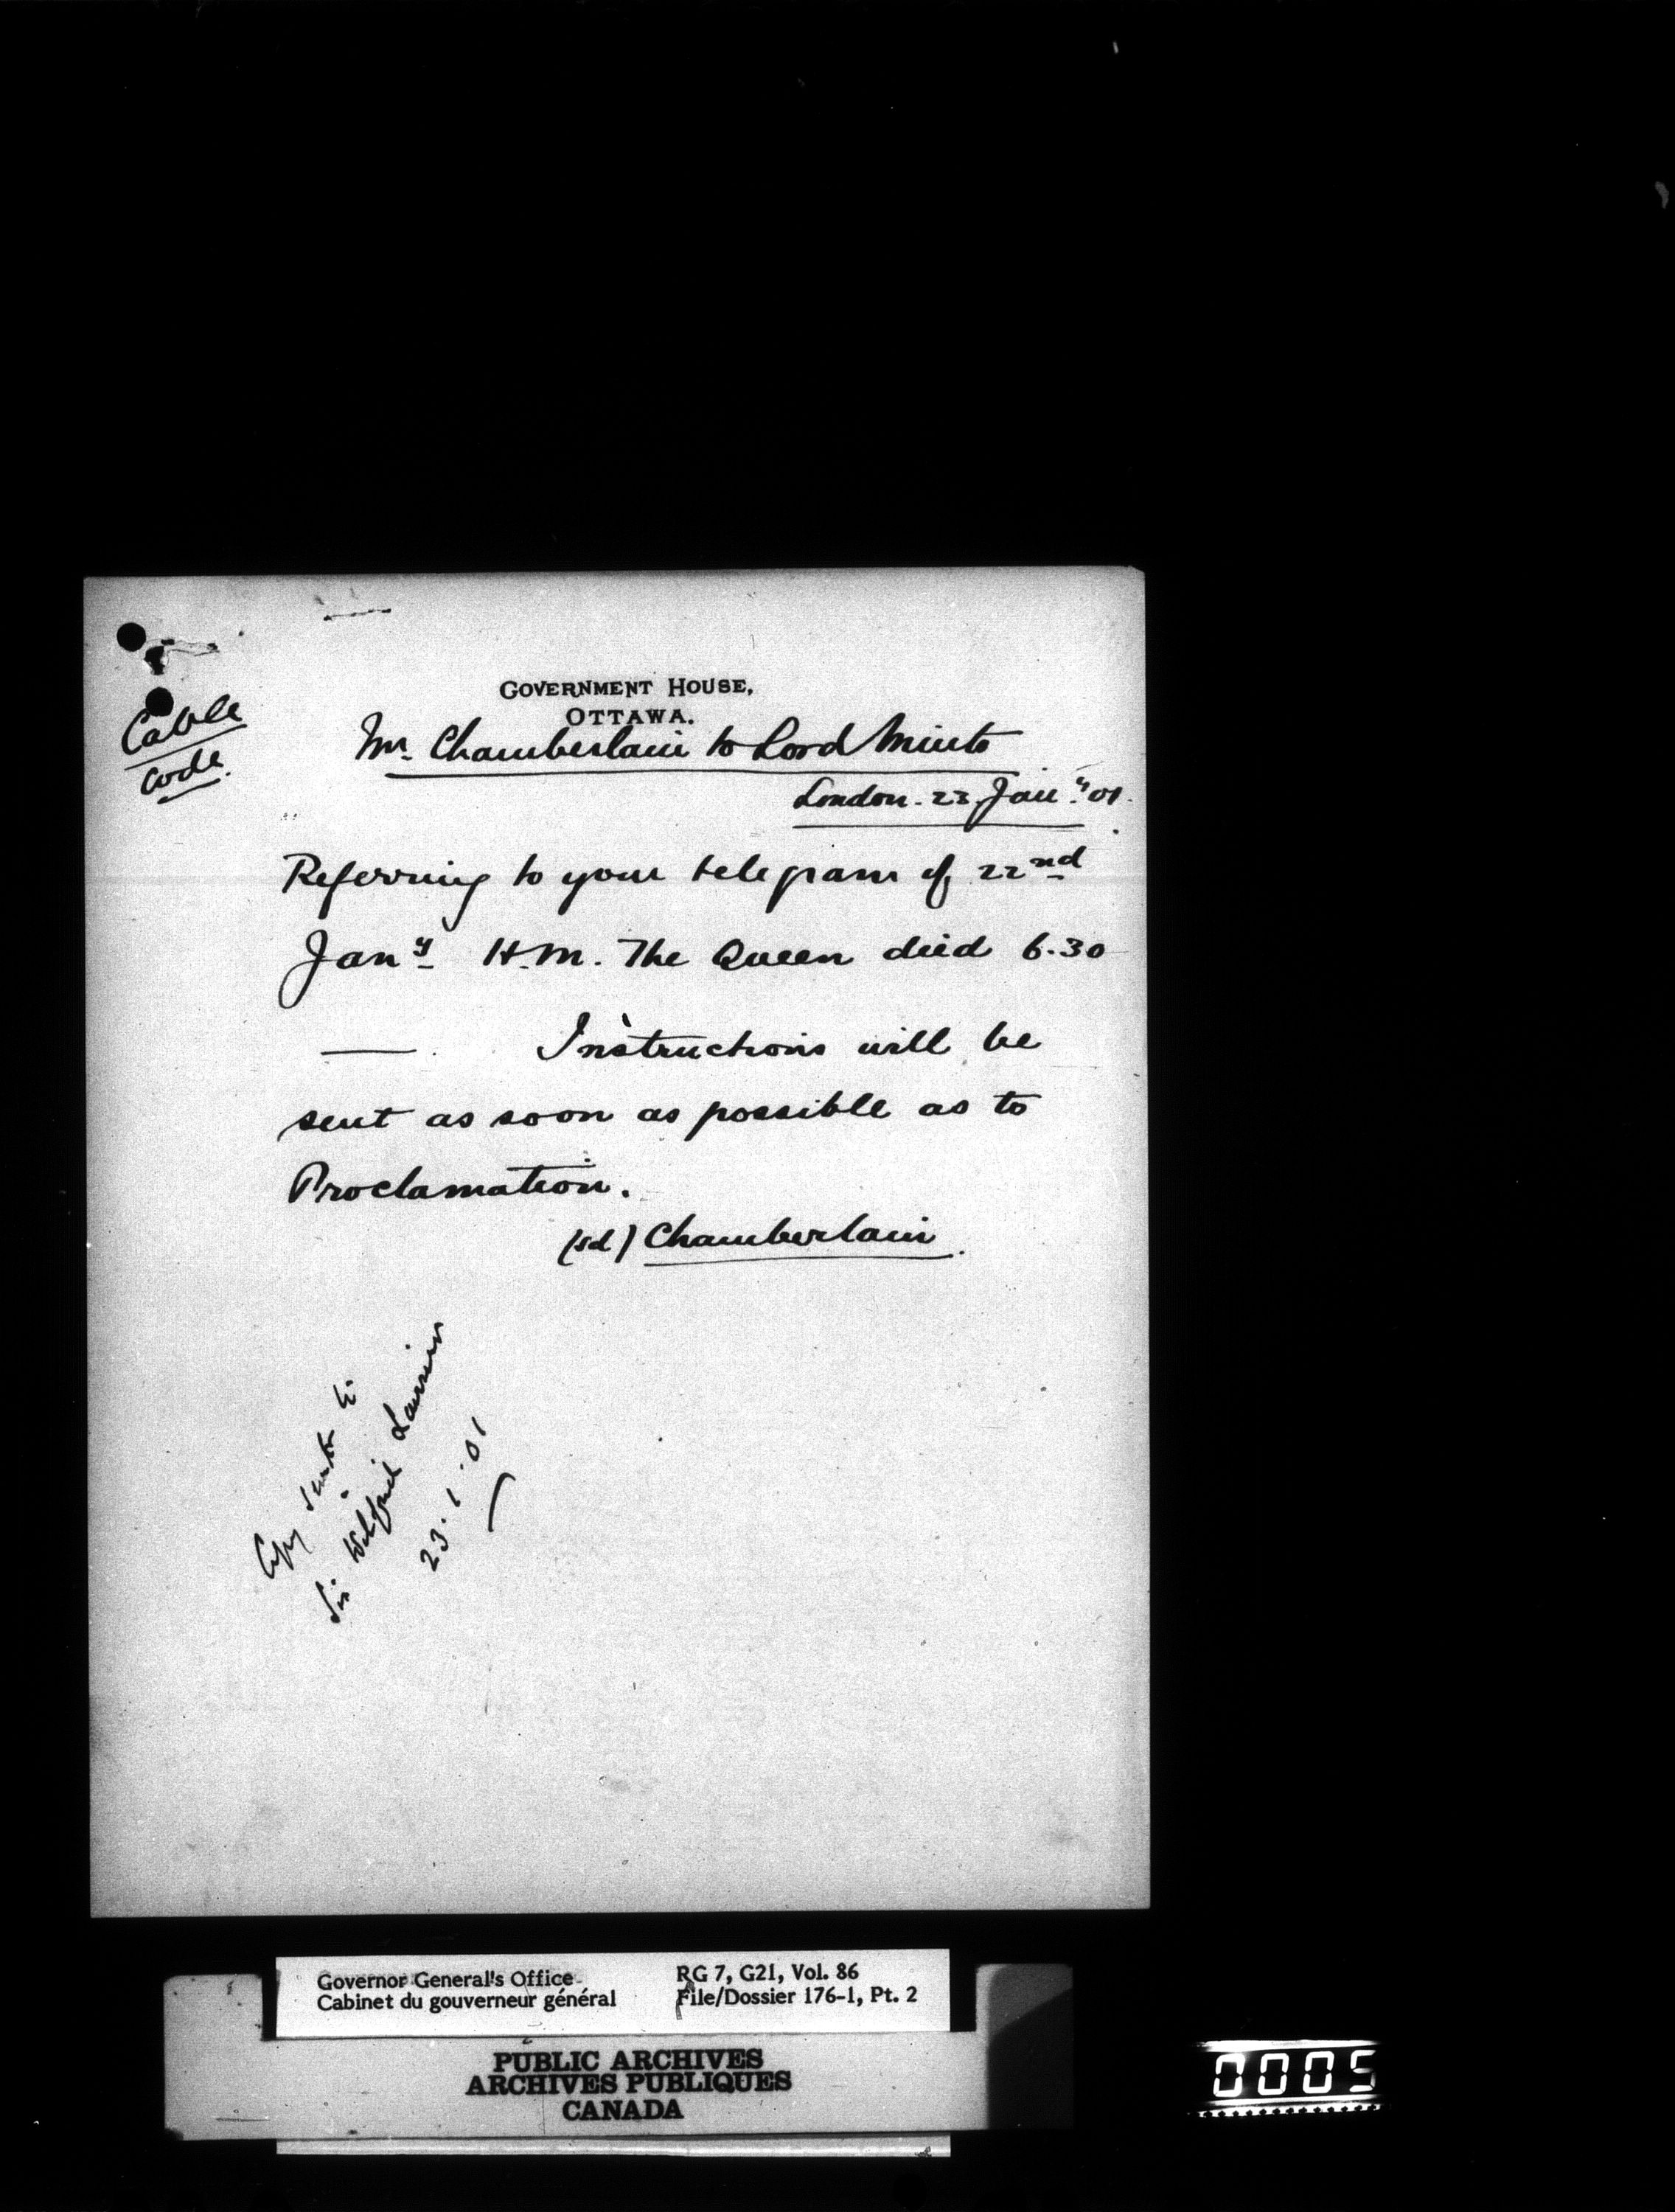 Cable
code.
GOVERNMENT HOUSE,
OTTAWA.
Mr. Chamberlain to Lord Minto
London. 22 Jany. 01.
Referring to your telegram of 22nd
Jany H.M. The Queen died 6.30
—. Instructions will be
sent as soon as possible as to
Proclamation.
(sd) Chamberlain.
Copy sent to
Sir Wilfrid Laurier
23.1.01
Governor General's Office
Cabinet du gouverneur général
RG 7, G21, Vol. 86
File/Dossier 176-1, Pt. 2
PUBLIC ARCHIVES
ARCHIVES PUBLIQUES
CANADA
0005